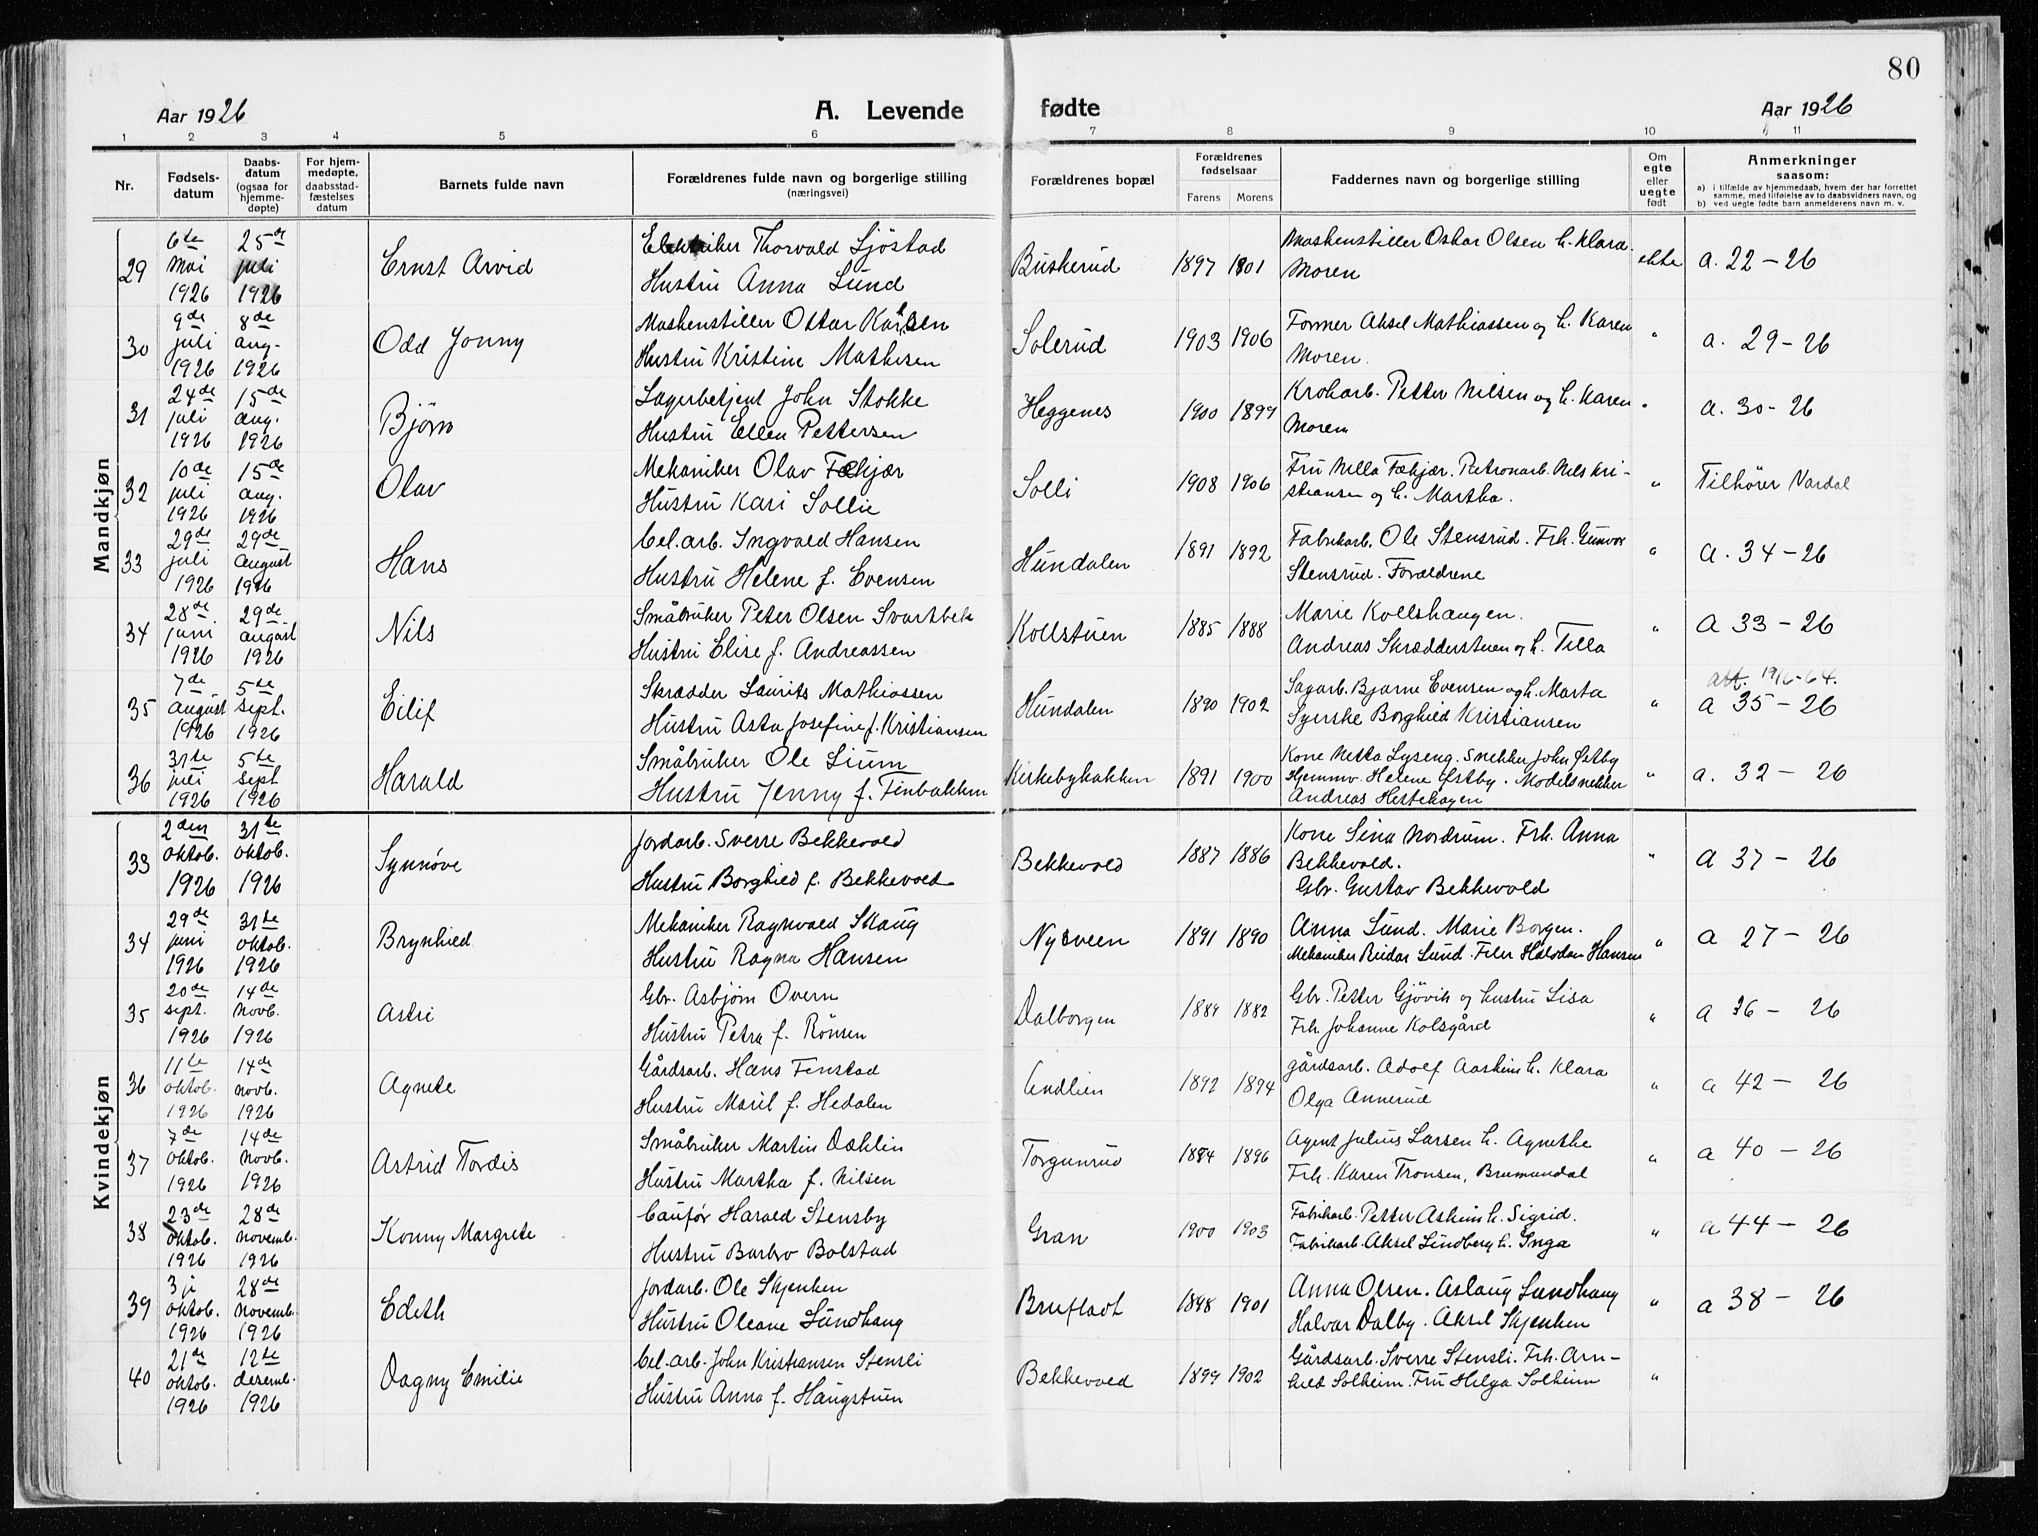 80
Aar 1926
A. Levende
fødte
Aar 1926
1 2 3 4 5 6 7 8 9 10 11
Nr.
Fødsels-
datum
Daabs-
datum
(ogsaa for
hjemme-
døpte)
For hjem-
medøpte,
daabsstad-
fæstelses
datum
Barnets fulde navn
Forældrenes fulde navn og borgerlige stilling
(næringsvei)
Forældrenes bopæl
Forældrenes
fødselsaar
Farens Morens
Faddernes navn og borgerlige stilling
Om
egte
eller
uegte
født
Anmerkninger
saasom:
a) i tilfælde av hjemmedaab, hvem der har forrettet
samme, med tilføielse av to daabsvidners navn, og
b) ved uegte fødte barn anmelderens navn m. v.
Mandkjøn
29
6te
mai
1926
25de
juli
1926
Ernst Arvid
Thorvald Sjöstad
Hustru Anna Lund
Buskerud
1897 1901
Maskenstiller Oskar Olsen h. Klara.
Moren
ekte
a. 22-26
30
9de
juli
1926
8de
aug.
1926
Odd Jonny
Maskenstiller Ottar Karlsen
Hustru Kristine Mathisen
Solerud
1903 1906
Former Aksel Mathiassen og h. Karen
Moren.
"
a. 29-26
31
24de
juli
1926
15de
aug.
1926
Bjørn
Lagerbetjent John Stokke
Hustru Ellen Pettersen
Heggenes
1900 1899
Krokarb. Petter Nilsen og h. Karen
Moren
"
a. 30-26
32
10de
juli
1926
15de
aug.
1926
Olav
Mekaniker Olav Fækjær
Hustru Kari Sollie
Solli
1908 1906
Fru Nella Fækjær. Nils Kri-
stiansen og h. Martha.
"
Tilhører Vardal
33
29de
juli
1926
29de
august
1926
Hans
Cel.arb. Ingvald Hansen
Hustru Helene f. Evensen
Hundalen
1891 1892
Fabrikarb. Ole Stensrud. Frk. Gunvor
Stensrud. Forældrene
"
a. 34-26
34
28de
juni
1926
29de
august
1926
Nils
Småbruker Peter Olsen Svartbek
Hustru Elise f. Andreassen
Kollstuen
1885 1888
Marie Kollshaugen.
Andreas Skrædderstuen og h. Tilla
"
a 33-26
35
7de
august
1926
5te
sept.
1926
Eilif
Skrædder Laurits Mathiassen
Hustru Asta Josefine f. Kristiansen
Hundalen
1890 1902
Sagarb. Bjarne Evensen og h. Marta
Syerske Borghild Kristiansen
"
att. 19/6-64.
a 35-26
36
31te
juli
1926
5te
sept
1926
Harald
Småbruker Ole Lium
Hustru Jenny f. Finbakken
Kirkebybakken
1891 1900
Kone Netta Lyseng. Snekker John Østby
Hjemmv. Helene Østby. Modelsnekker
Andreas Hestehagen
"
a. 32-26
Kvindekjøn
33
2den
oktob.
1926
31te
oktob.
1926
Synnøve
Jordarb. Sverre Bekkevold
Hustru Borghild f. Bekkevold
Bekkevold
1887 1886
Kone Sina Nordrum. Frk. Anna
Bekkevold.
Gbr. Gustav Bekkevold
"
a 37-26
34
29de
juni
1926
31te
oktob.
1926
Brynhild
Mekaniker Ragnvald Skaug
Hustru Ragna Hansen
Nysveen
1891 1890
Anna Lund. Marie Borgen.
Mekaniker Reidar Lund. Filer Halvdan Hansen
"
a 27-26
35
20de
sept.
1926
14de
novb.
1926
Astri
Gbr. Asbjørn Overn
Hustru Petra f. Rønsen
Dalborgen
1884 1882
Gbr. Petter Gjøvik og hustru Lisa
Frk. Johanne Kolsgård
"
a 36-26
36
11te
oktob.
1926
14de
novb.
1926
Agnete
Gårdsarb. Hans Finstad
Hustru Maril f. Hedalen
Lindlien
1892 1894
gårdsarb. Adolf Aaskim h. Klara
Olga Annerud
"
a 42-26
37
7de
oktob.
1926
14de
novb.
1926
Astrid Tordis
Småbruker Martin Dæhlin
Hustru Martha f. Nilsen
Torgunrud
1884 1896
Agent Julius Larsen h. Agnethe
Frk. Karen Tronsen, Brumundal
"
a 40-26
38
23de
oktob.
1926
28de
novemb.
1926
Konny Margrete
Caufør Harald Stensby
Hustru Barbro Bolstad
Gran
1900 1903
Fabrikarb. Petter Askim h. Sigrid.
Fabrikarb. Aksel Lindberg h. Inga
"
a 44-26
39
3j
oktob.
1926
28de
novemb.
1926
Edith
Jordarb. Ole Skjenken
Hustru Oleane Lundhaug
Brufladt
1898 1901
Anna Olsen. Aslaug Lundhaug
Halvar Dalby. Aksel Skjenken
"
a 38-26
40
21de
oktob.
1926
12te
desemb.
1926
Dagny Emilie
Cel.arb. John Kristiansen Stensli
Hustru Anna f. Haugstuen
Bekkevold
1899 1902
Gårdsarb. Sverre Stensli. Frk. Arn-
hild Solheim. Fru Helga Solheim
"